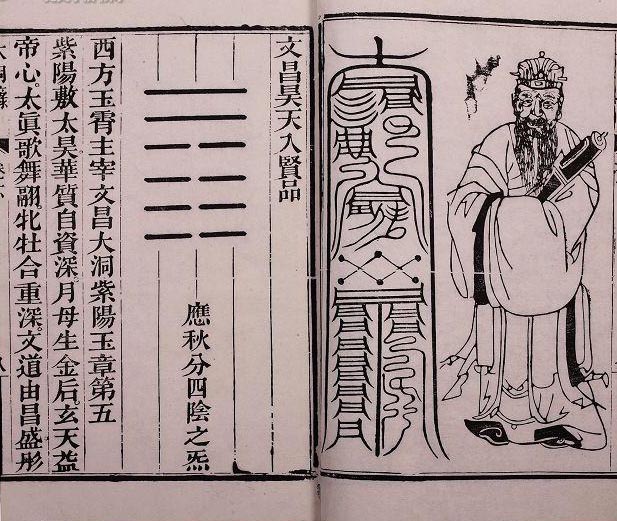 文昌昊天入賢品
應秋分四陰之炁
西方玉霄主宰文昌大洞紫陽玉章第五
紫陽敷太昊華質自資深。月母生金后。玄天益
帝心。太眞歌舞翮。牝牡合重深。文道由昌盛。彤